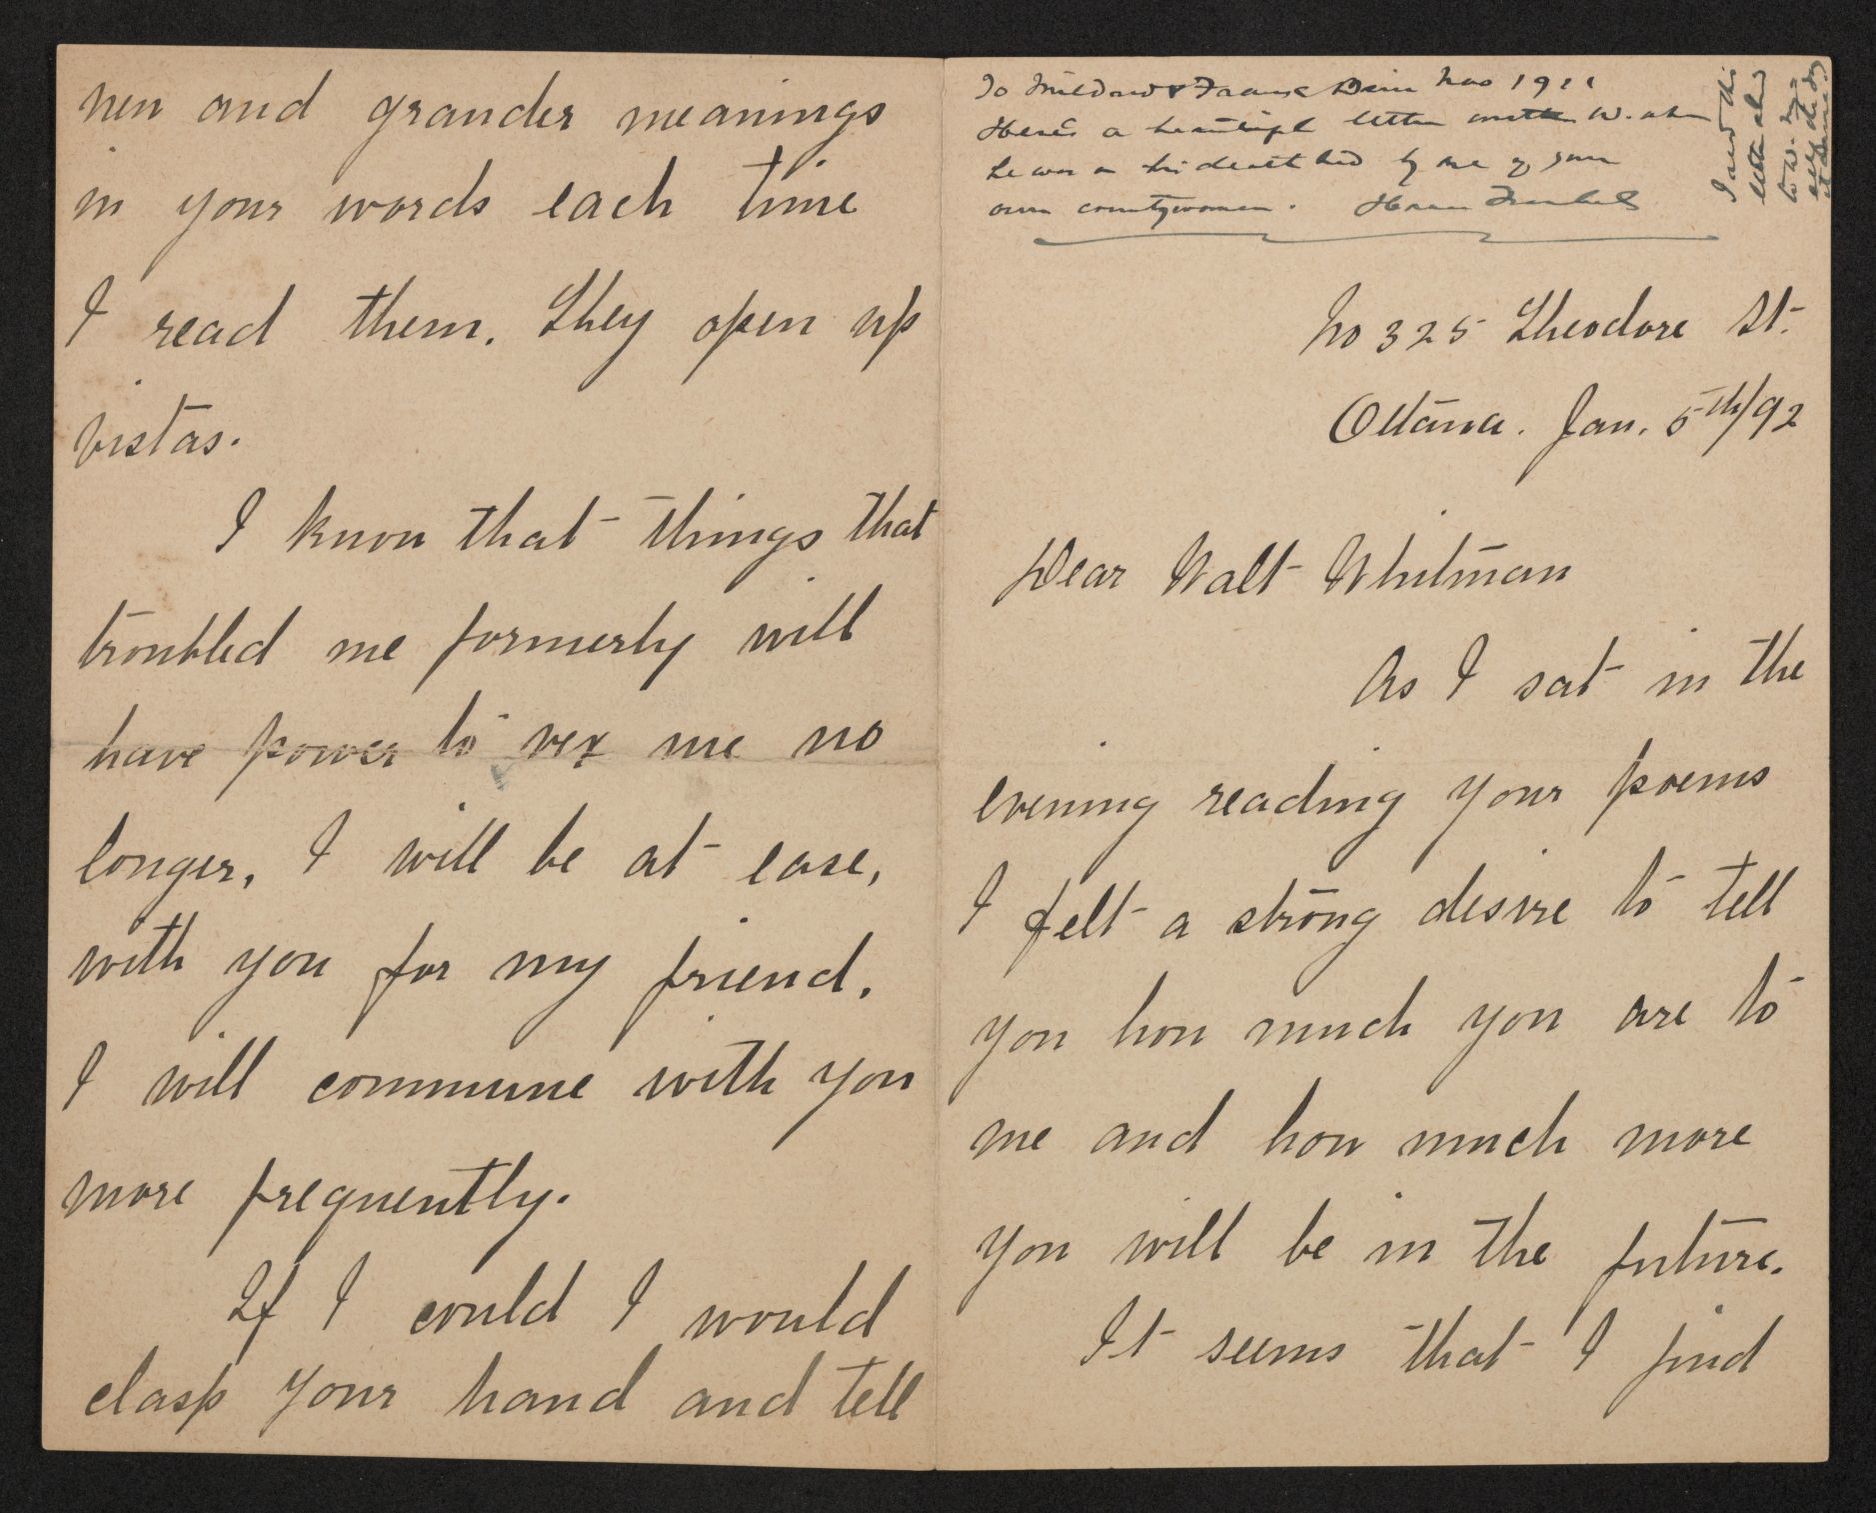 To Mildred & Frank Bain Nov 1911
Here's a beautiful letter written W. when
he was on his death bed by one of your
own countrywomen. Horace Traubel
I read this
letter aloud
to W. my
self the day
it came.
No 325 Theodore St.
Ottawa. Jan. 5th/92
Dear Walt Whitman
As I sat in the
evening reading your poems
I felt a strong desire to tell
you how much you are to
me and how much more
you will be in the future.
It seems that I find
new and grander meanings
in your words each time
I read them. They open up
vistas.
I know that things that
troubled me formerly will
have power to vex me no
longer, I will be at ease,
with you for my friend.
I will commune with you
more frequently.
If I could I would
clasp your hand and tell